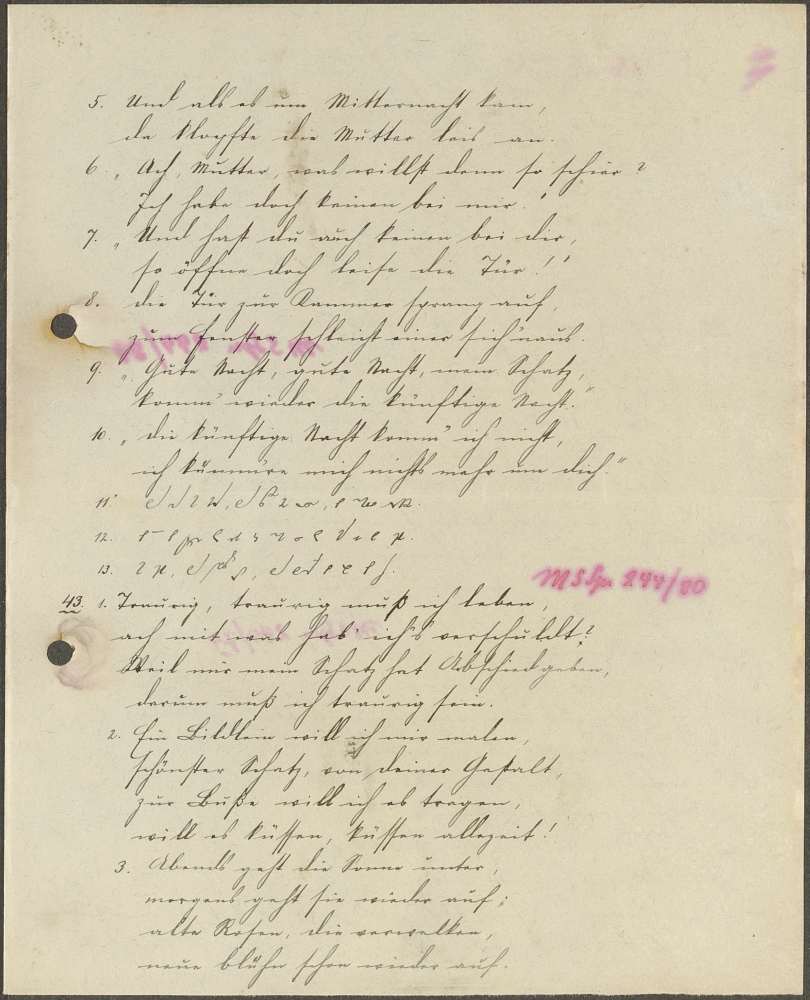 5. Und als es um Mitternacht kam,
da klopfte die Mutter leis an.
6. „Ach, Mutter, was willst denn so schier?
Ich habe doch keinen bei mir.“
7. „Und hast du auch keinen bei dir,
so öffne doch leise die Tür!“
8. die Tür zur Kammer sprang auf,
zum Fenster schleicht einer sich naus.
9. „Gute Nacht, gute Nacht, mein Schatz,
komm' wieder die künftige Nacht.“
10. „die künftige Nacht komm' ich nicht,
ich kümmere mich nichts mehr um dich.“
11.
12.
13.
MSSgn 244/80
43. 1. Traurig, traurig muß ich leben,
ach mit was hab' ich's verschuldt?
Weil mir mein Schatz hat Abschied geben,
darum muß ich traurig sein.
2. Ein Bildlein will ich mir malen,
schönster Schatz, von deiner Gestalt,
zur Buße will ich es tragen,
will es küssen, küssen allezeit!
3. Abends geht die Sonne unter,
morgens geht sie wieder auf;
alte Rosen, die verwelken,
neue blühn schon wieder auf.